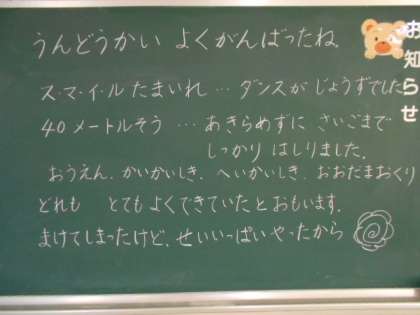 うんどうかい よくがんばったね
ス・マ・イ・ル たまいれ … ダンスが じょうずでした
40メートルそう … あきらめずに さいごまで
しっかり はしりました。
おうえん、かいかいしき、へいかいしき、おおだまおくり
どれも とてもよくできていたとおもいます。
まけてしまったけど、せいいっぱいやったから
お知らせ